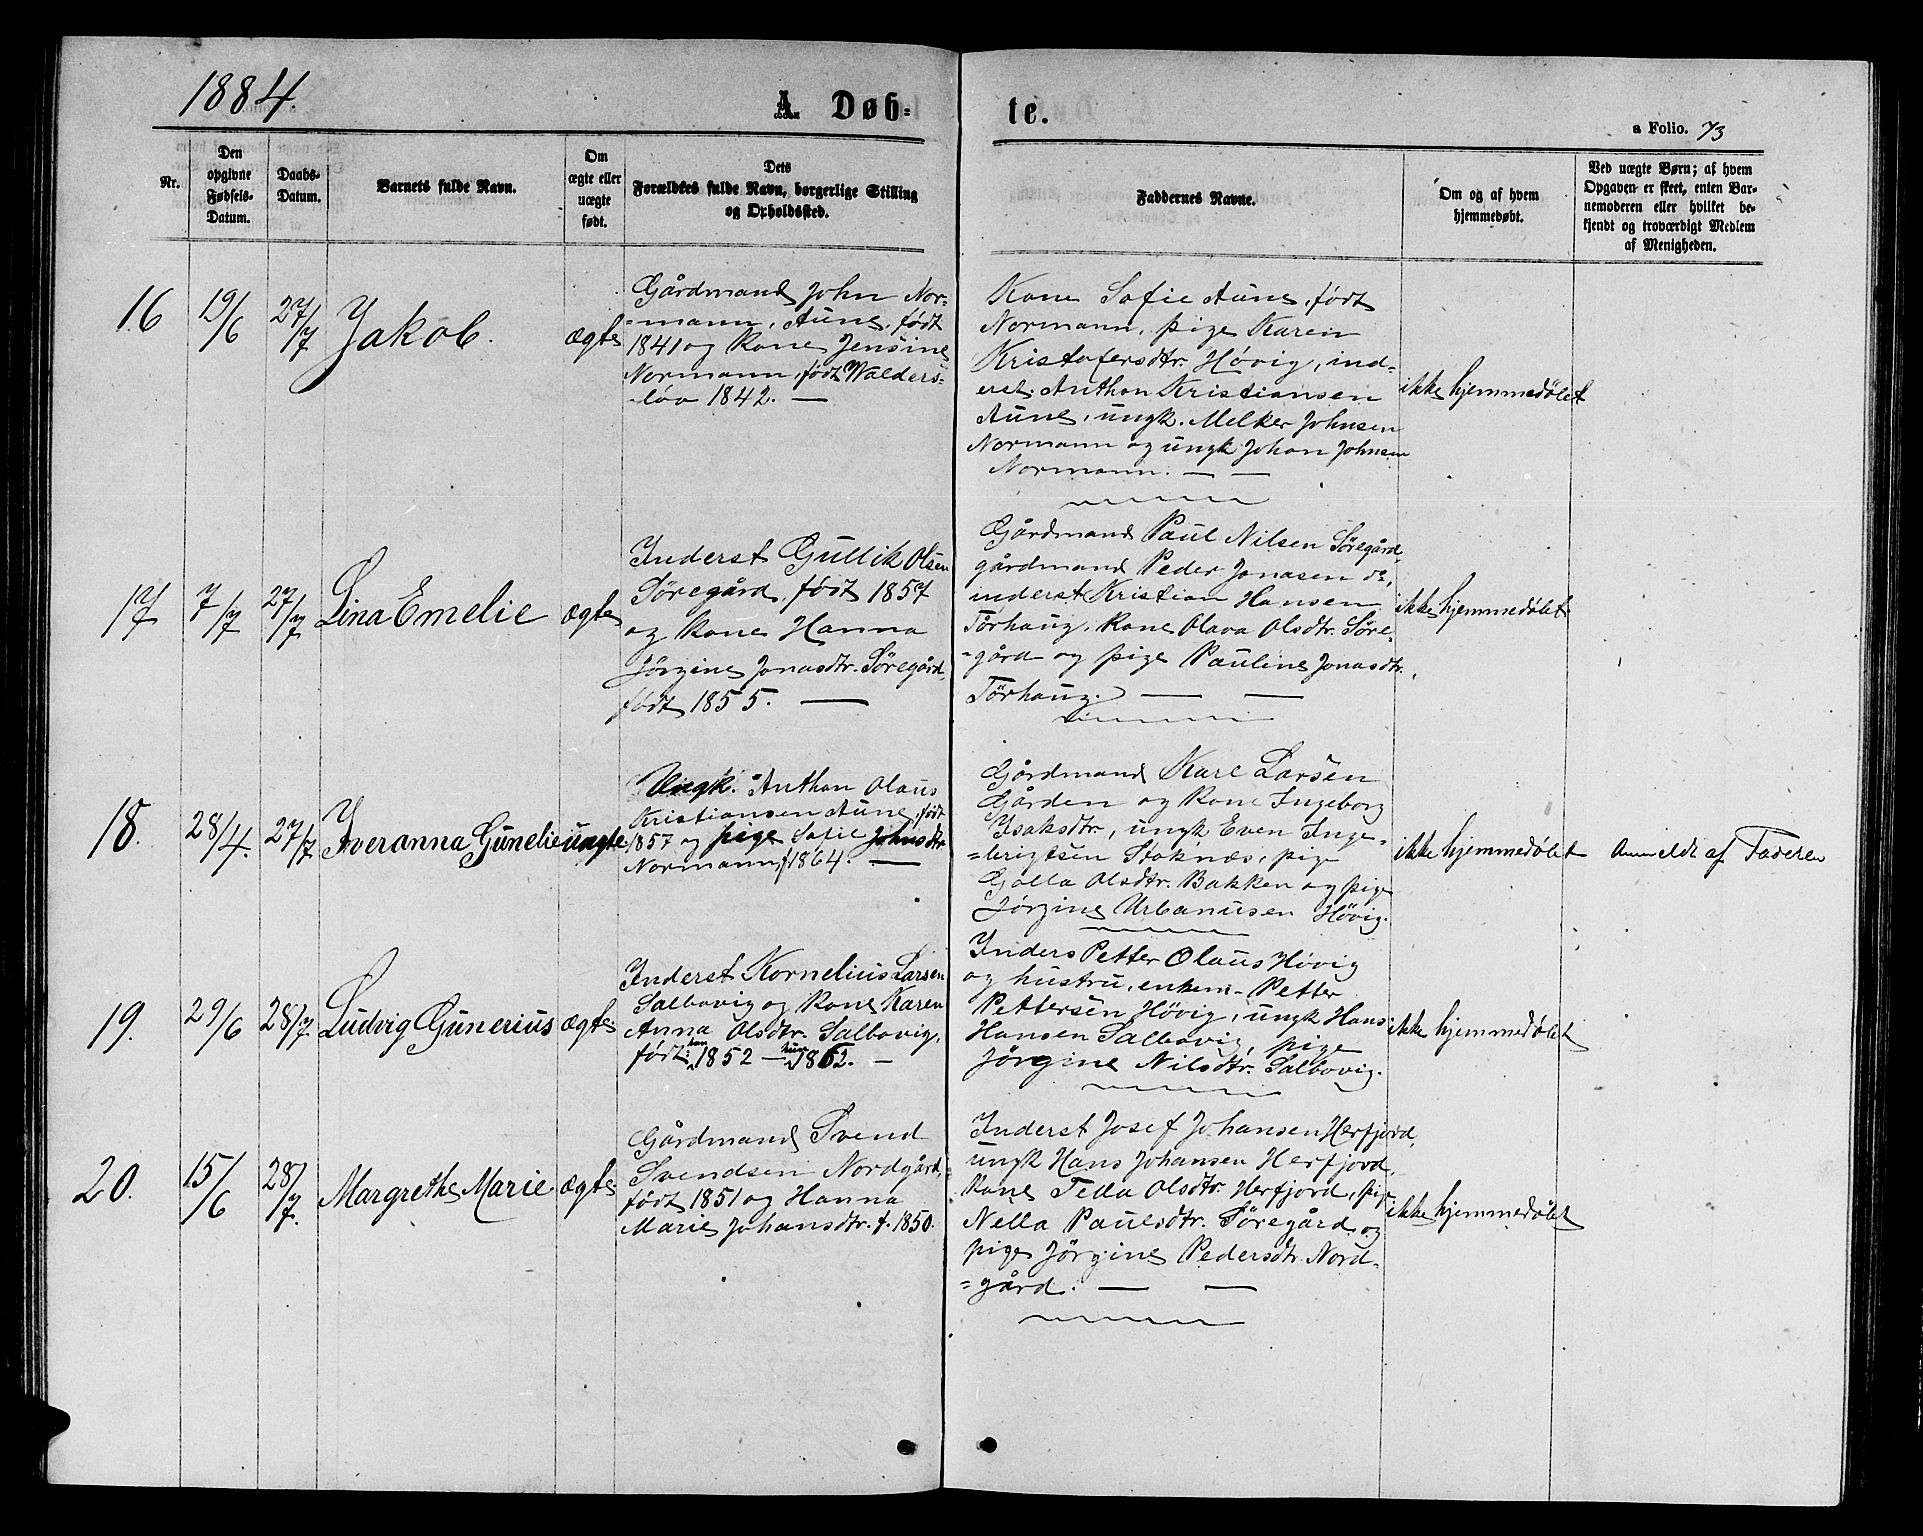 1884
A. Døb-
te.
a Folio. 73
Nr.
Den opgivne Fødsels-Datum.
Daabs-Datum.
Barnets fulde Navn.
Om ægte eller uægte født.
Dets Forældres fulde Navn, borgerlige Stilling og Opholdssted.
Faddernes Navne.
Om og af hvem hjemmedøbt.
Ved uægte Børn; af hvem Opgaven er skeet, enten Barnemoderen eller hvilket bekjendt og troværdigt Medlem af Menigheden.
16
19/6
27/7
Jakob.
ægte
Gårdmand John Nor-
=mann, Aune, født
1841 og Kone Jensine
Normann, født Walders-
-löv 1842. —
Kone Sofie Aune, født
Normann, pige Karen
Kristofersdtr. Hövig, ind-
erst Anthon Kristiansen
Aune, ungk. Melker Johnsen
Normann og ungk Johan Johnsen
Normann. — —
ikke hjemmedøbt
17
7/7
27/7
Lina Emelie
ægte
Inderst Gullik Olsen
Söregård, født 1857
og Kone Hanna
Jörgine Jonasdtr. Söregård,
født 1855. —
Gårdmand Paul Nilsen Söregård,
gårdmand Peder Jonasen do,
inderst Kristian Hansen
Törhaug, Kone Olava Olsdtr. Söre-
=gård og pige Pauline Jonasdtr.
Törhaug. — —
ikke hjemmedøbt
18.
28/4.
27/7
Iveranna Gunelie
uægte
Ungk. Anthon Olaus
Kristiansen Aune, født
1857 og pige Sofie Johnsdtr
Normann, f 1864. —
Gårdmand Karl Larsen
Gården og Kone Ingeborg
Ysaksdtr, ungk Even Inge-
=brigtsen Stoknæs, pige
Golla Olsdtr. Bakken og pige
Jörgine Urbanusen Hövig.
ikke hjemmedøbt
Anmeldt af Faderen
19.
29/6
28/7
Ludvig Gunerius
ægte
Inderst Kornelius Larsen
Salbovig og Kone Karen
Anna Olsdtr. Salbovig,
født: han 1852 — hun 1862. —
Inders Petter Olaus Hövig
og hustru, enkem- Petter
Pettersen Hövig, ungk Hans
Hansen Salbovig, pige
Jörgine Nilsdtr. Salbovig.
ikke hjemmedøbt
20.
15/6
28/7.
Margrethe Marie
ægte
Gårdmand Svend
Svendsen Nordgård,
født 1851 og Hanna
Marie Johansdtr. f. 1850.
Inderst Josef Johansen Herfjord,
ungk Hans Johansen Herfjord,
Kone Tella Olsdtr. Herfjord, pige
Nella Paulsdtr. Söregård og
pige Jörgine Pedersdtr Nord-
=gård. — —
ikke hjemmedøbt